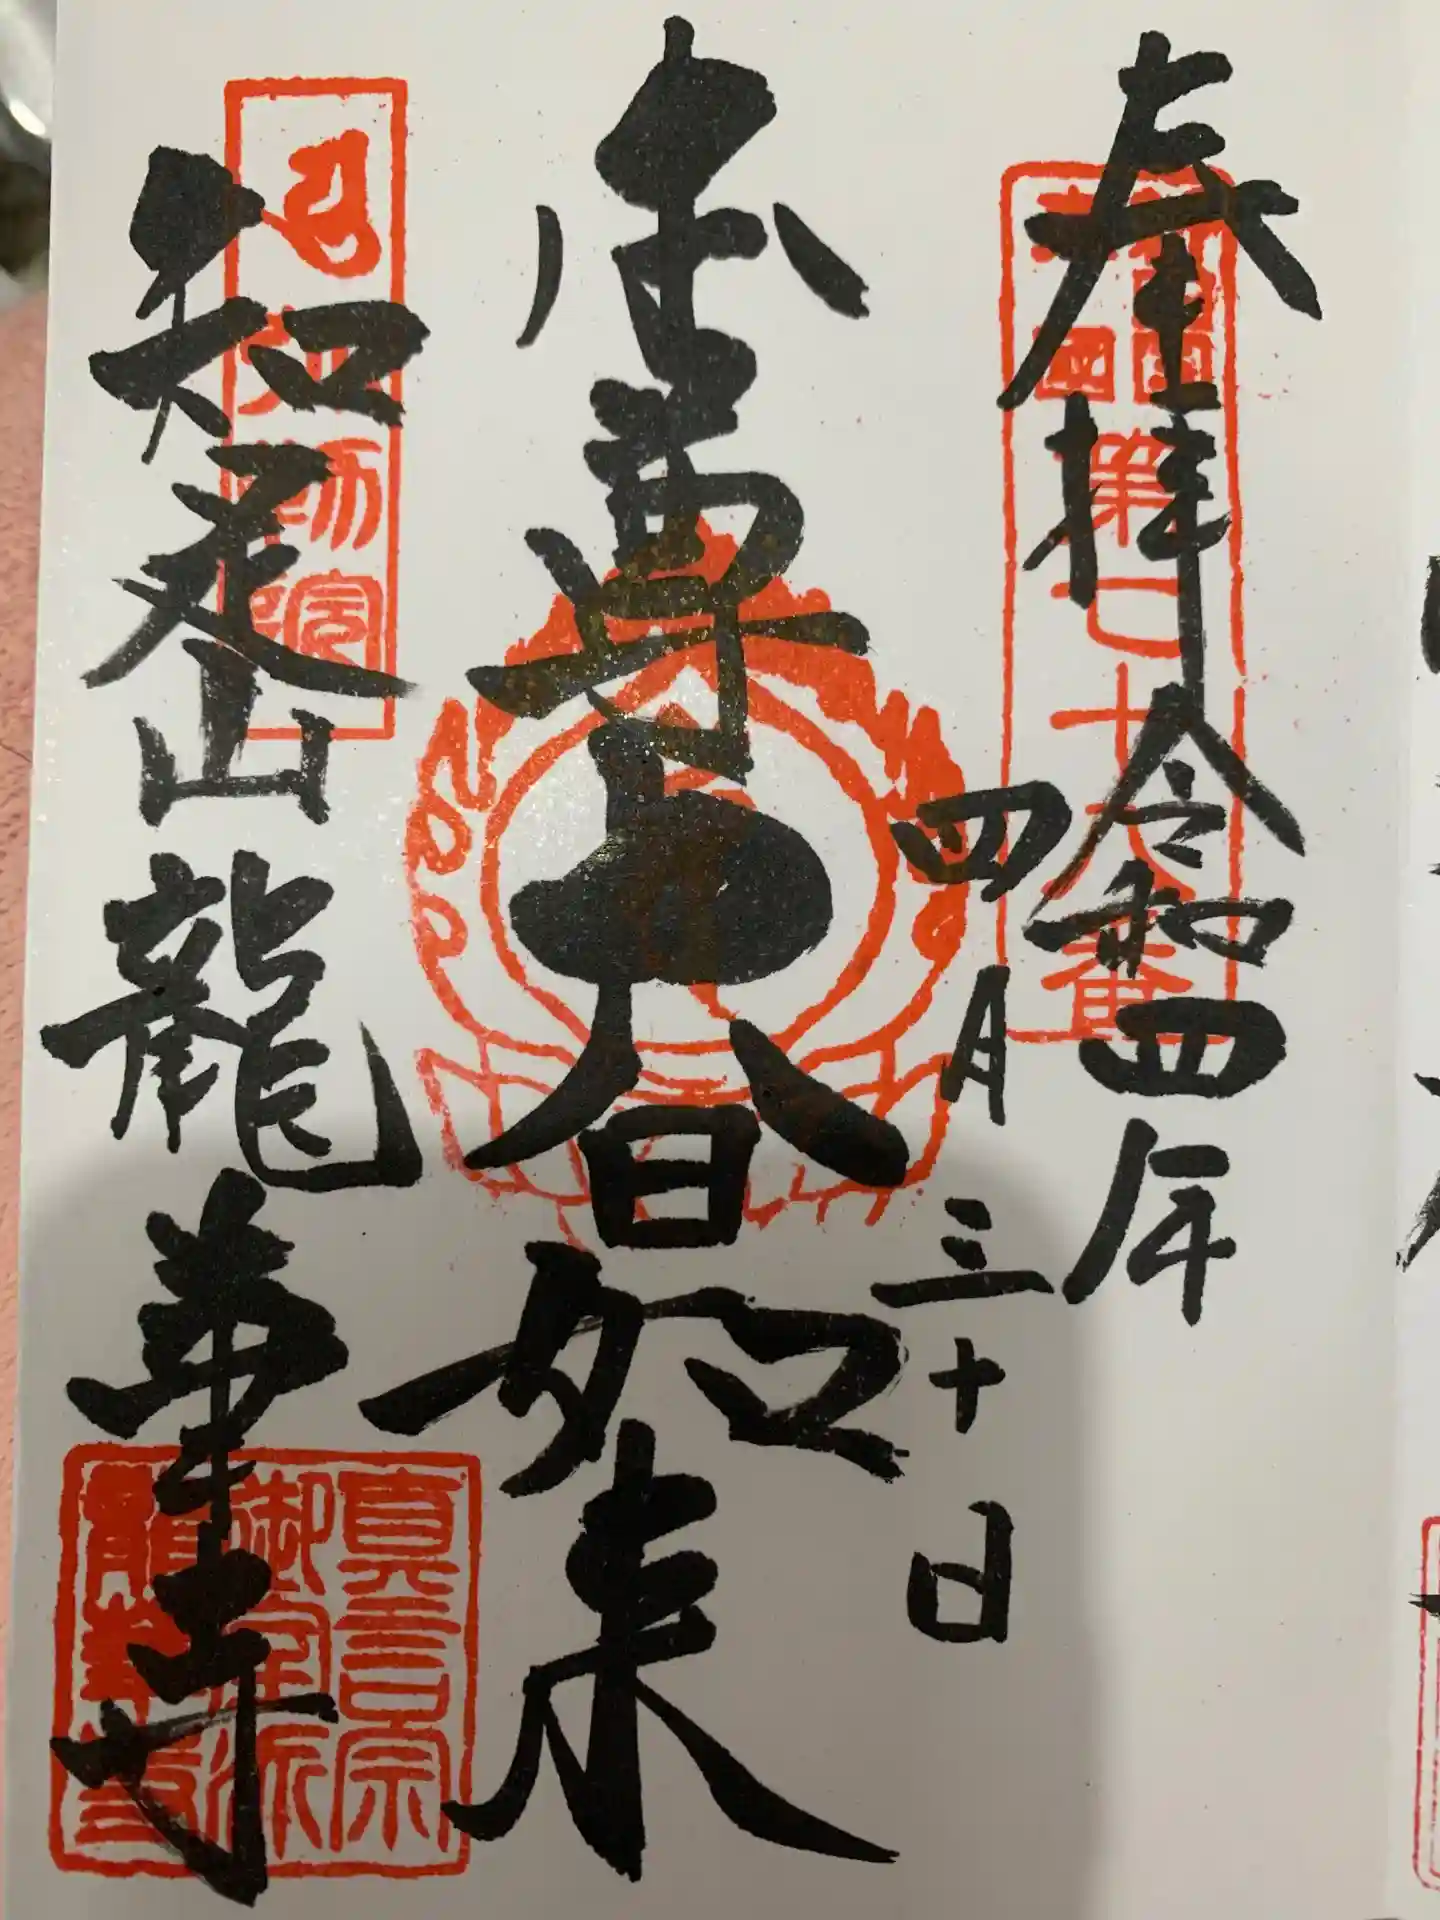 奉拝 令和四年
四月三十日
本尊大日如来
弥勒院
知足山龍華寺
真言宗
御室派
龍華寺